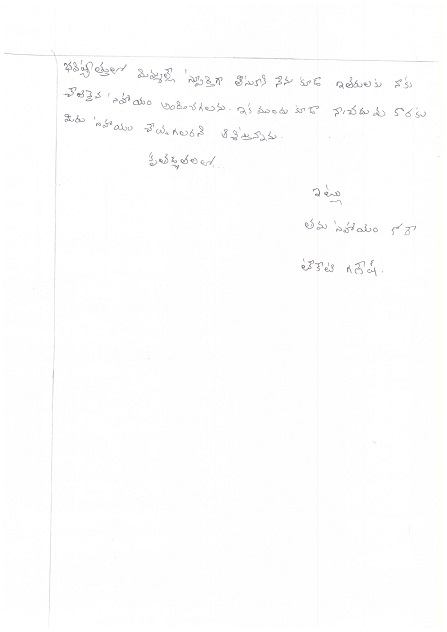 భవిష్యత్తులో మిమ్మల్ని స్ఫూర్తిగా తీసుకొని నేను కూడా ఇతరులకు నాకు
చేతనైన సహాయం అందించగలను. ఇక ముందు కూడా నా చదువు కొరకు
మీరు సహాయం చేయగలరని ఆశిస్తున్నాను.
కృతజ్ఞతలతో..
ఇట్లు
తమ సహాయం కోరే
గణేష్.